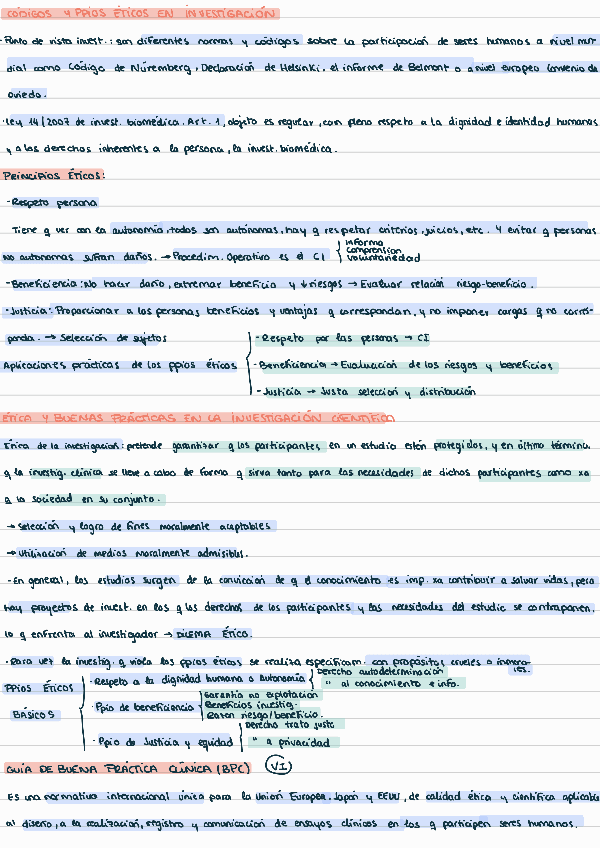 CÓDIGOS Y PPIOS ÉTICOS EN INVESTIGACIÓN
·Punto de vista invest.: son diferentes normas y códigos sobre la participación de seres humanos a nivel mun-
dial como Código de Núremberg, Declaración de Helsinki, el informe de Belmont o a nivel europeo Convenio de
Oviedo.
·Ley 14/2007 de invest. biomédica. Art. 1, objeto es regular, con pleno respeto a la dignidad e identidad humanas
y a los derechos inherentes a la persona, la invest. biomédica.
PRINCIPIOS ÉTICOS:
·Respeto persona
Tiene q ver con la autonomía, todos son autónomas, hay q respetar criterios, juicios, etc. Y evitar q personas
no autonomas sufran daños. → Procedim. Operativo es el CI { Informa
comprensión
voluntariedad
-Beneficiencia: No hacer daño, extremar beneficio y ↓ riesgos → Evaluar relación riesgo-beneficio.
·Justicia: Proporcionar a las personas beneficios y ventajas q correspondan, y no imponer cargas q no corres-
ponda. → Selección de sujetos
Aplicaciones prácticas de los ppios éticos
-Respeto por las personas → CI
-Beneficiencia → Evaluación de los riesgos y beneficios
-Justicia → Justa selección y distribución
ÉTICA Y BUENAS PRÁCTICAS EN LA INVESTIGACIÓN CIENTÍFICA
Ética de la investigación: pretende garantizar q los participantes en un estudio estén protegidos, y en último término,
q la investig. clínica se lleve a cabo de forma q sirva tanto para las necesidades de dichos participantes como xa
a la sociedad en su conjunto.
→ Selección y logro de fines moralmente aceptables
→ Utilización de medios moralmente admisibles.
-En general, los estudios surgen de la convicción de q el conocimiento es imp. xa contribuir a salvar vidas, pero
hay proyectos de invest. en los q los derechos de los participantes y las necesidades del estudio se contraponen,
lo q enfrenta al investigador → DILEMA ÉTICO.
·Rara vez la investig. q viola los ppios éticos se realiza específicam. con propósitos crueles o inmora-
les.
PPIOS ÉTICOS
BÁSICOS
·Respeto a la dignidad humana o autonomía { Derecho autodeterminación
" al conocimiento e info.
·Ppio de beneficiencia { Garantía no explotación
Beneficios investig.
Razón riesgo/beneficio.
·Ppio de Justicia y equidad { Derecho trato justo
" a privacidad
GUÍA DE BUENA PRÁCTICA CLÍNICA (BPC) VI
Es una normativa internacional única para la Unión Europea, Japón y EEUU, de calidad ética y científica aplicable
al diseño, a la realización, registro y comunicación de ensayos clínicos en los q participen seres humanos.